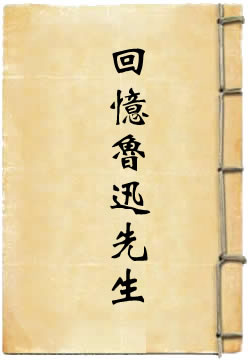 回憶魯迅先生